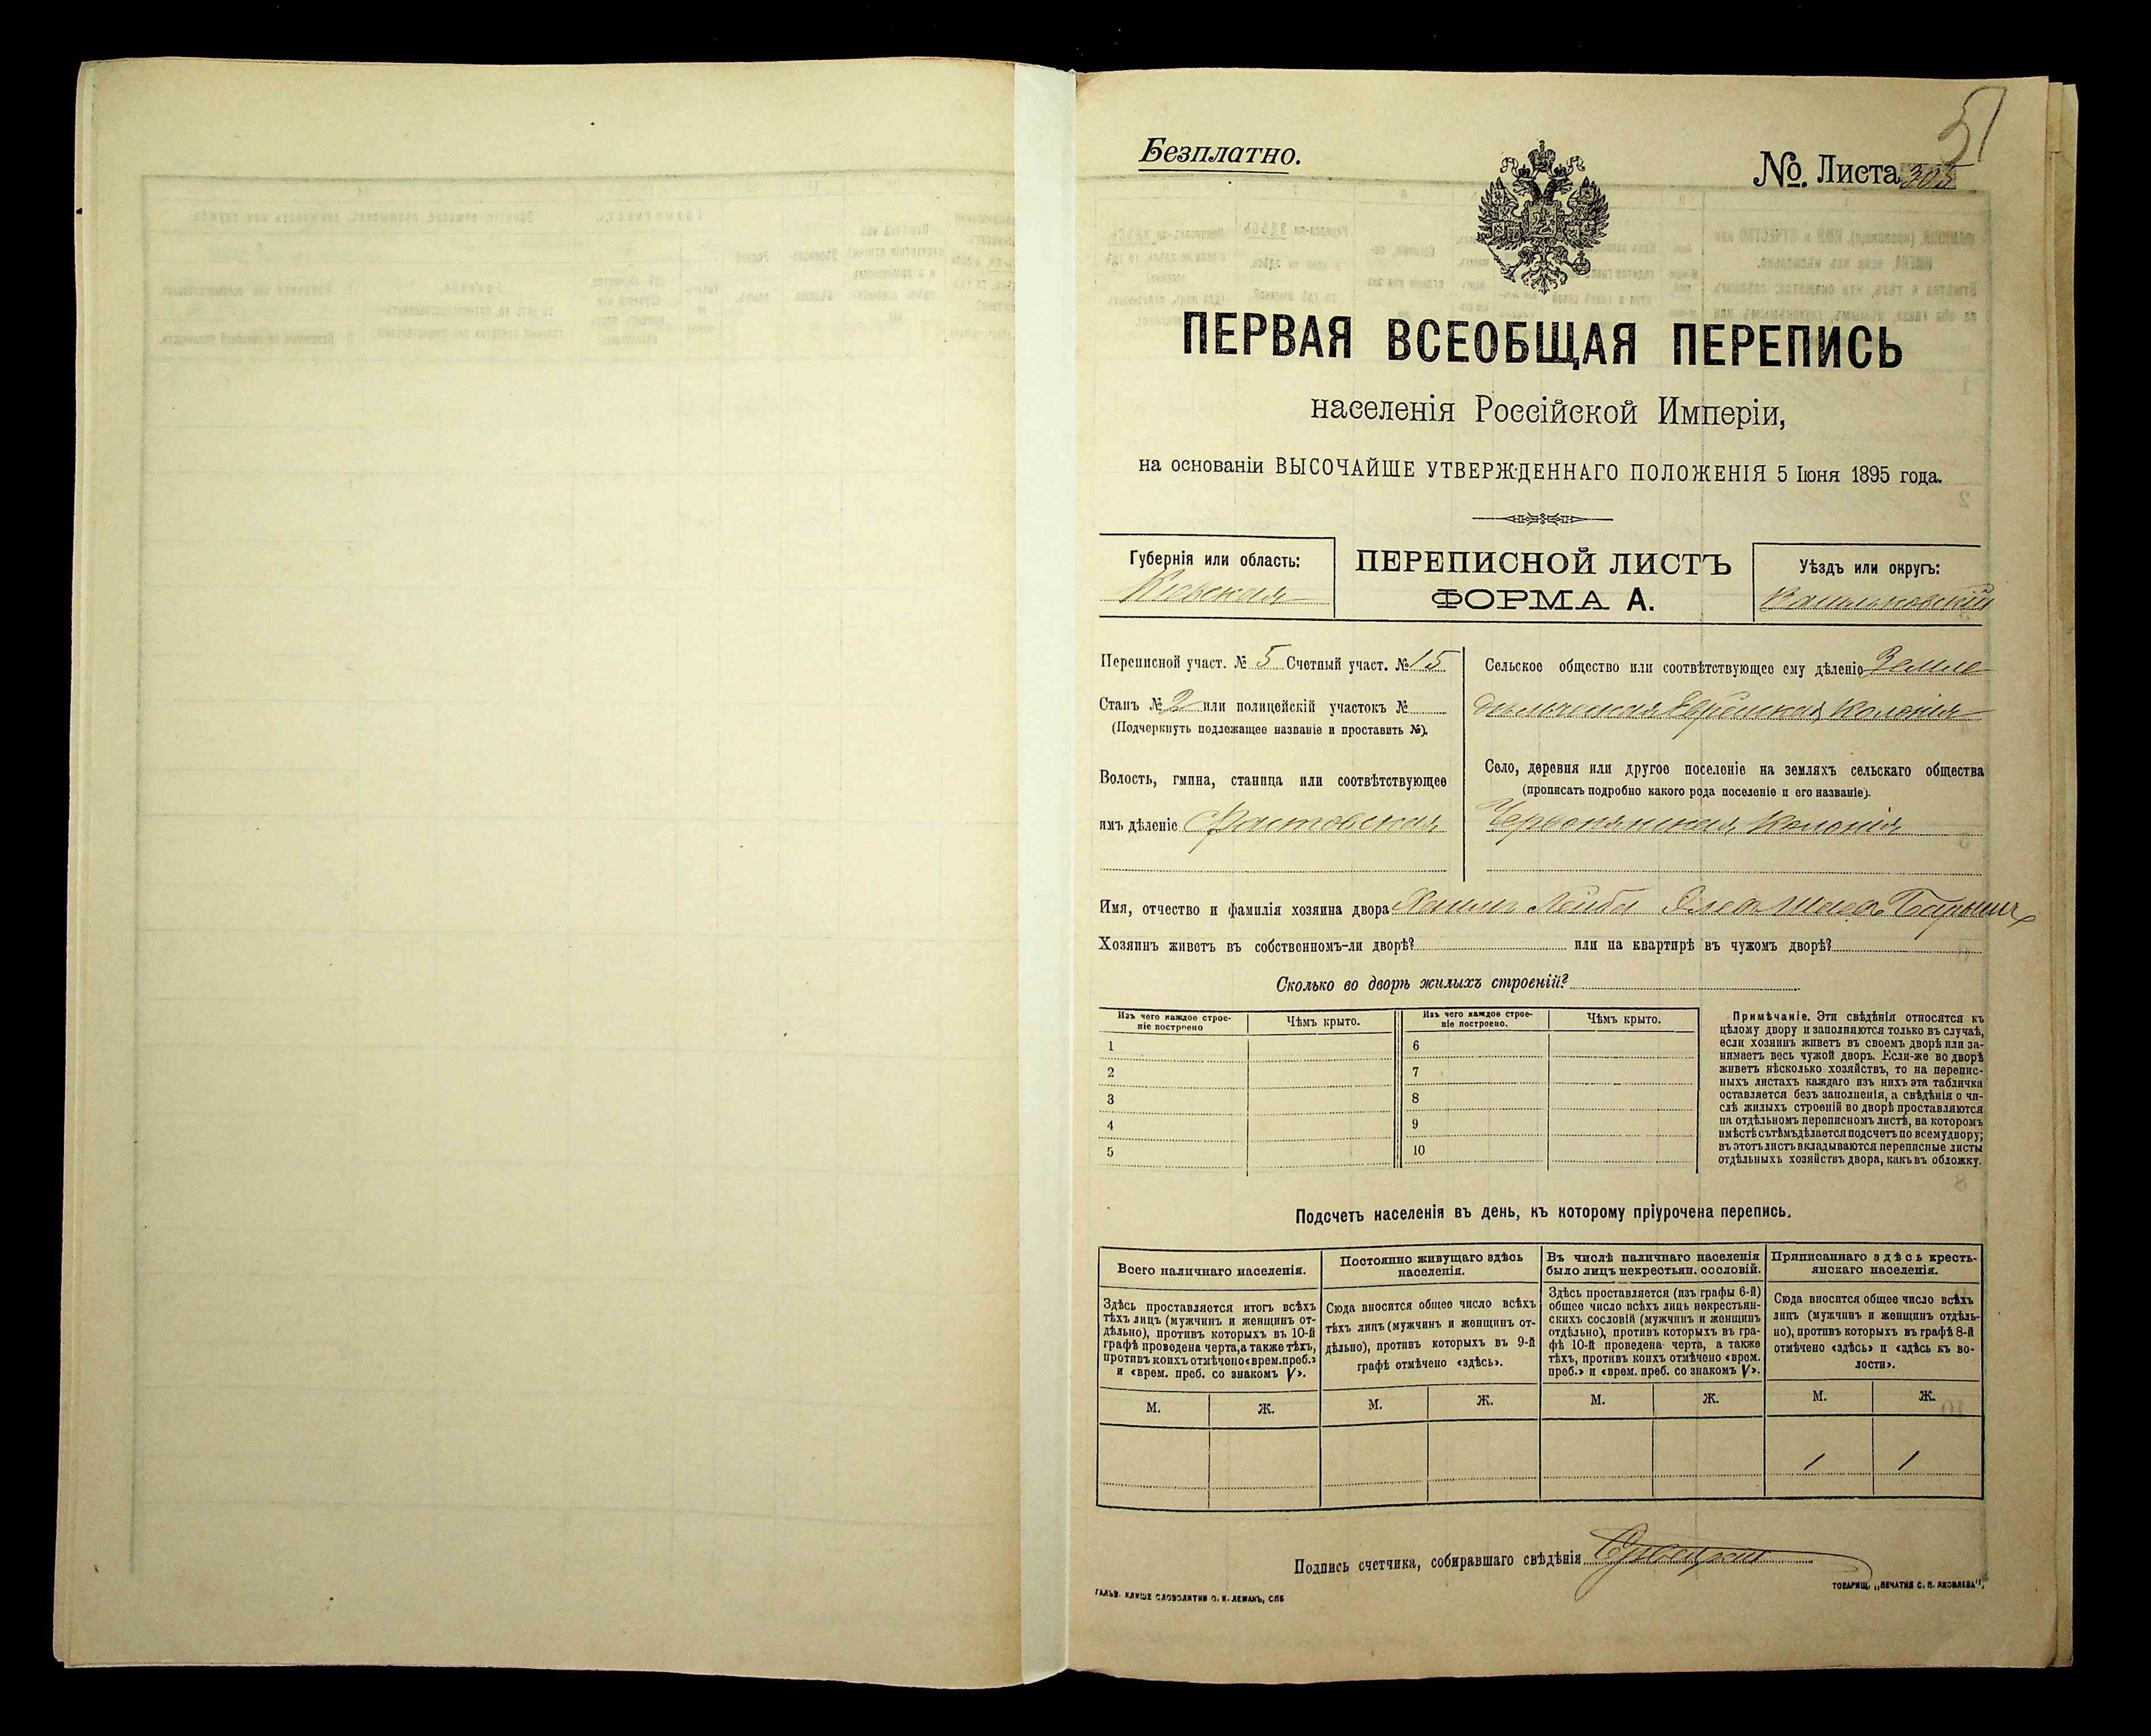 51
Безплатно.
№. Листа 305
ПЕРВАЯ ВСЕОБЩАЯ ПЕРЕПИСЬ
населенія Россійской Имперіи,
на основаніи ВЫСОЧАЙШЕ УТВЕРЖДЕННАГО ПОЛОЖЕНІЯ 5 Іюня 1895 года.
Губернія или область:
Кіевская
ПЕРЕПИСНОЙ ЛИСТЪ
ФОРМА А.
Уѣздъ или округъ:
Васильковскій
Переписной участ. № 5 Счетный участ. № 15
Станъ № 2 или полицейскій участокъ №
(Подчеркнуть подлежащее названіе и проставить №).
Волость, гмина, станица или соотвѣтствующее
имъ дѣленіе Фастовская
Сельское общество или соотвѣтствующее ему дѣленіе Земле
дѣльческая Еврейская Колонія
Село, деревня или другое поселеніе на земляхъ сельскаго общества
(прописать подробно какого рода поселеніе и его названіе).
Червонянская Колонія
Имя, отчество и фамилія хозяина двора Лейба
Хозяинъ живетъ въ собственномъ-ли дворѣ? или на квартирѣ въ чужомъ дворѣ?
Сколько во дворѣ жилыхъ строеній?
Изъ чего каждое строе-
ніе построено
Чѣмъ крыто.
Изъ чего каждое строе-
ніе построено.
Чѣмъ крыто.
1 6
2 7
3 8
4 9
5 10
Примѣчаніе. Эти свѣдѣнія относятся къ
цѣлому двору и заполняются только въ случаѣ,
если хозяинъ живетъ въ своемъ дворѣ или за-
нимаетъ весь чужой дворъ. Если-же во дворѣ
живетъ нѣсколько хозяйствъ, то на перепис-
ныхъ листахъ каждаго изъ нихъ эта табличка
оставляется безъ заполненія, а свѣдѣнія о чи-
слѣ жилыхъ строеній во дворѣ проставляются
на отдѣльномъ переписномъ листѣ, на которомъ
вмѣстѣ съ тѣмъ дѣлается подсчетъ по всему двору;
въ этотъ листъ вкладываются переписные листы
отдѣльныхъ хозяйствъ двора, какъ въ обложку.
Подсчетъ населенія въ день, къ которому пріурочена перепись.
Всего наличнаго населенія.
Постоянно живущаго здѣсь
населенія.
Въ числѣ наличнаго населенія
было лицъ некрестьян. сословій.
Приписаннаго здѣсь кресть-
янскаго населенія.
Здѣсь проставляется итогъ всѣхъ
тѣхъ лицъ (мужчинъ и женщинъ от-
дѣльно), противъ которыхъ въ 10-й
графѣ проведена черта, а также тѣхъ,
противъ коихъ отмѣчено «врем. преб.»
и «врем. преб. со знакомъ V».
Сюда вносится общее число всѣхъ
тѣхъ лицъ (мужчинъ и женщинъ от-
дѣльно), противъ которыхъ въ 9-й
графѣ отмѣчено «здѣсь».
Здѣсь проставляется (изъ графы 6-й)
общее число всѣхъ лицъ некрестьян-
скихъ сословій (мужчинъ и женщинъ
отдѣльно), противъ которыхъ въ гра-
фѣ 10-й проведена черта, а также
тѣхъ, противъ коихъ отмѣчено «врем.
преб.» и «врем. преб. со знакомъ V».
Сюда вносится общее число всѣхъ
лицъ (мужчинъ и женщинъ отдѣль-
но), противъ которыхъ въ графѣ 8-й
отмѣчено «здѣсь» и «здѣсь къ во-
лости».
М. Ж. М. Ж. М. Ж. М. Ж.
1 1
Подпись счетчика, собиравшаго свѣдѣнія
ГАЛЬВ. КЛИШЕ СЛОВОЛИТНИ О. И. ЛЕМАНЪ, СПБ
ТОВАРИЩ. „ПЕЧАТНЯ С. П. ЯКОВЛЕВА",